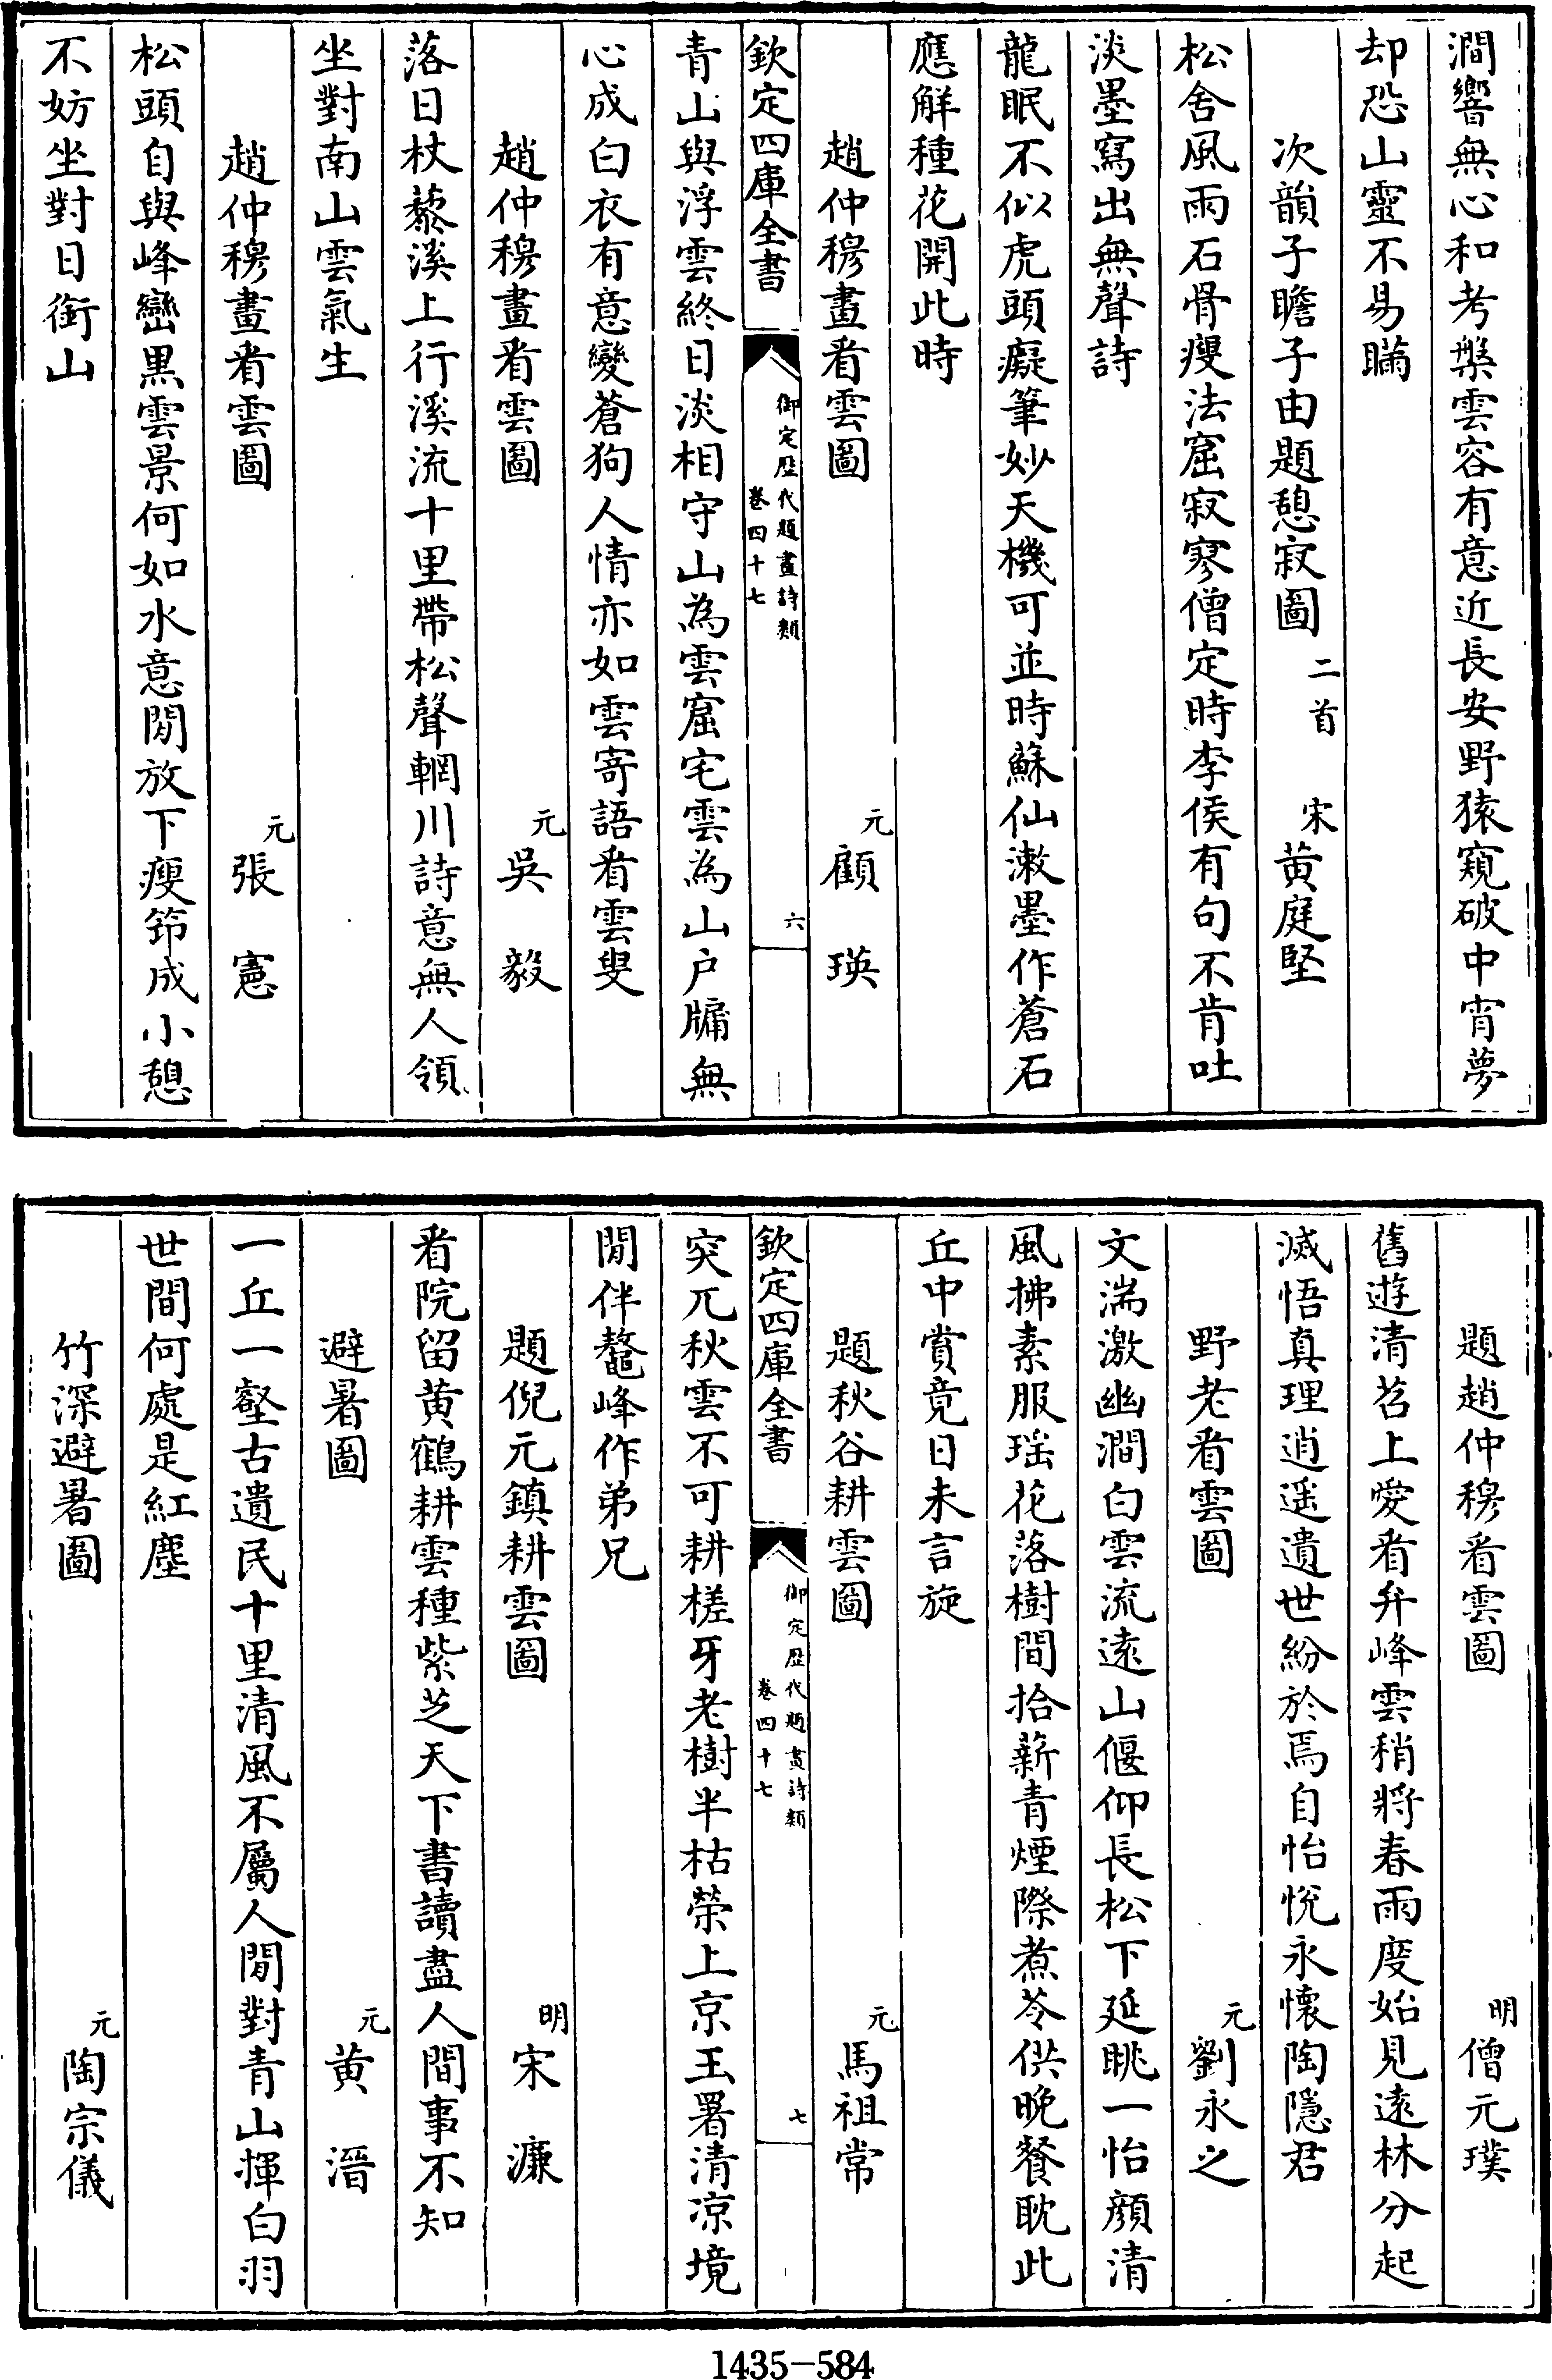 澗響無心和考槃雲容有意近長安野猿窺破中宵夢
却恐山靈不易瞞
次韻子瞻子由題憩寂圖二首 宋黄庭堅
松舍風雨石骨瘦法窟寂寥僧定時李侯有句不肯吐
淡墨寫出無聲詩
龍眠不似虎頭癡筆妙天機可並時蘇仙漱墨作蒼石
應解種花開此時
趙仲穆畫看雲圖 元顧瑛
欽定四庫全書 御定歴代題畫詩類 卷四十七 六
青山與浮雲終日淡相守山為雲窟宅雲為山户牖無
心成白衣有意變蒼狗人情亦如雲寄語看雲叟
趙仲穆畫看雲圖 元吳毅
落日杖藜溪上行溪流十里帶松聲輞川詩意無人領
坐對南山雲氣生
趙仲穆畫看雲圖 元張憲
松頭自與峰巒黒雲景何如水意閒放下瘦筇成小憩
不妨坐對日銜山
題趙仲穆看雲圖 明僧元璞
舊遊清苕上愛看弁峰雲稍將春雨度始見遠林分起
滅悟真理逍遥遺世紛於焉自怡悦永懷陶隱君
野老看雲圖 元劉永之
文湍激幽澗白雲流遠山偃仰長松下延眺一怡顔清
風拂素服瑶花落樹間拾薪青煙際煮苓供晩餐耽此
丘中賞竟日未言旋
題秋谷耕雲圖 元馬祖常
欽定四庫全書 御定歴代題畫詩類 卷四十七 七
突兀秋雲不可耕槎牙老樹半枯榮上京玉署清凉境
閒伴鼇峰作弟兄
題倪元鎮耕雲圖 明宋濂
看院留黄鶴耕雲種紫芝天下書讀盡人間事不知
避暑圖 元黄溍
一丘一壑古遺民十里清風不屬人閒對青山揮白羽
世間何處是紅塵
竹深避暑圖 元陶宗儀
1435-584